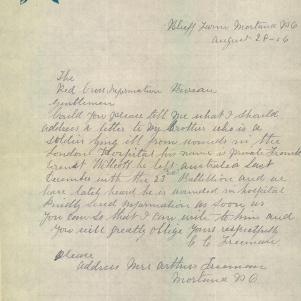 Mortana P.O.
August 28-16
The
Red Cross Information Bureau
Gentlemen
Would you please tell me what I should
address a letter to my Brother who is a
soldier lying ill from wounds in the
London Hospital his name is Private Francis
Ernest he left Australia last
December with the 23rd Battalion and we
have lately heard he is wounded in hospital
Kindly send information as soon as
you can so that I can write to him and
you will greatly oblige yours respectfully
C C Freeman
Please
address Mrs Arthur Freeman
Mortana P.O.